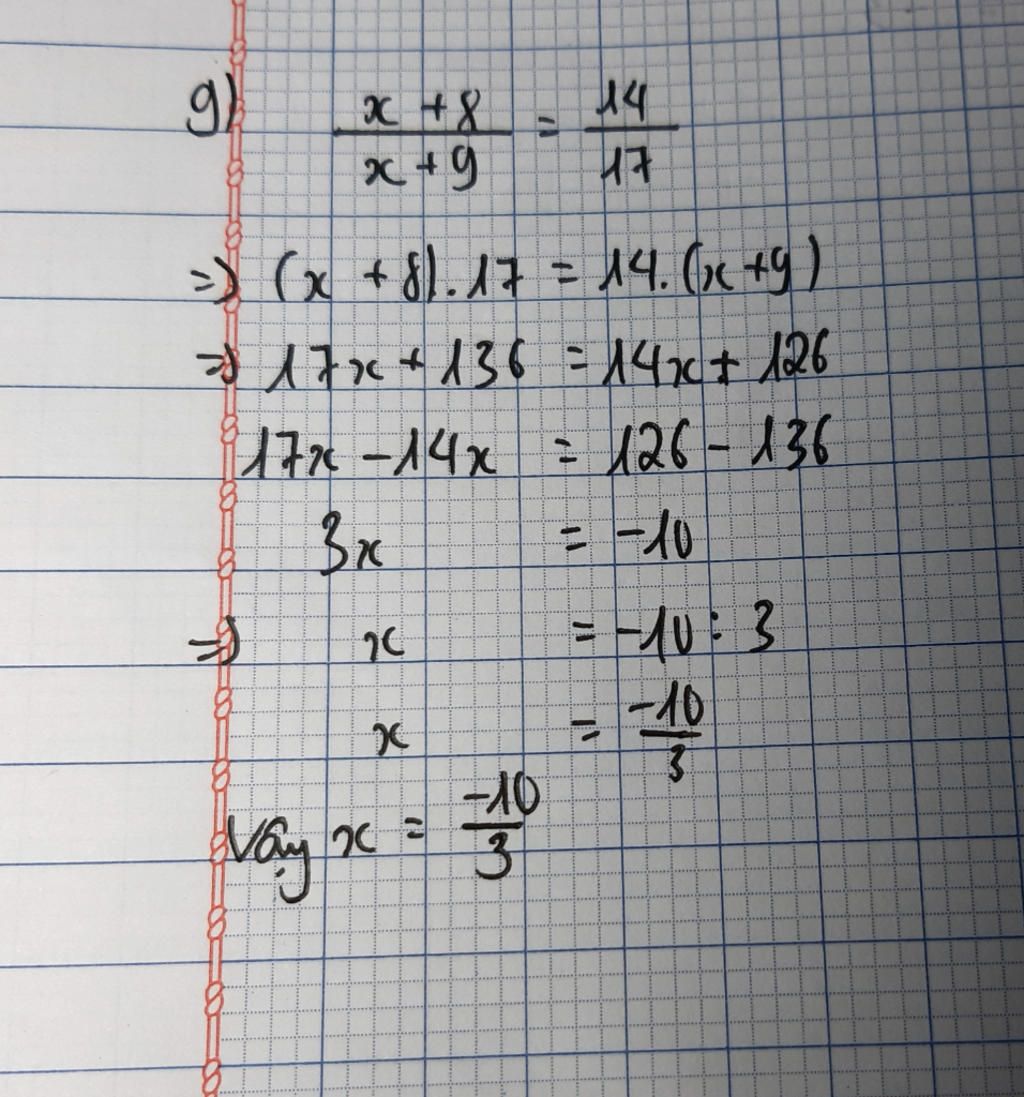 g) \frac{x + 8}{x + 9} = \frac{14}{17}
=) (x + 8).17 = 14.(x + 9)
=) 17x + 136 = 14x + 126
17x - 14x = 126 - 136
3x = -10
=) x = -10 : 3
x = \frac{-10}{3}
Vậy x = \frac{-10}{3}